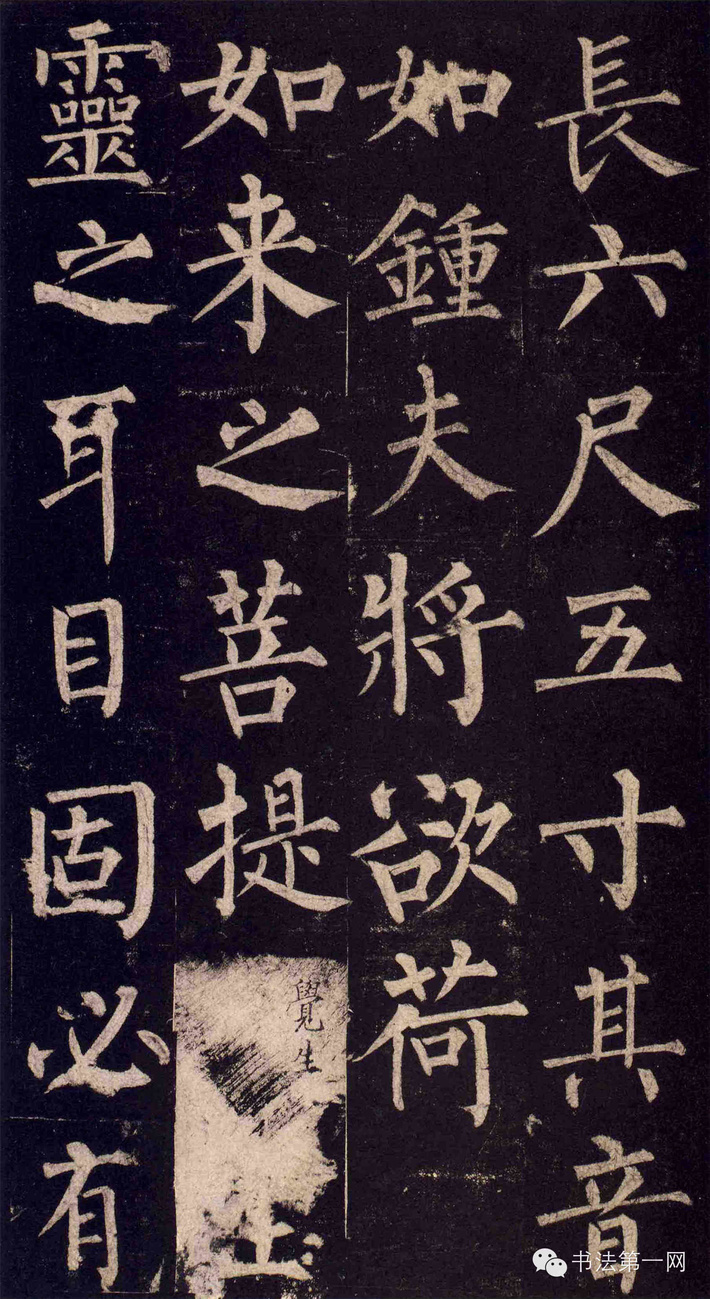 長六尺五寸其音
如鍾夫將欲荷
如来之菩提
覺生
靈之耳目固必有
书法第一网